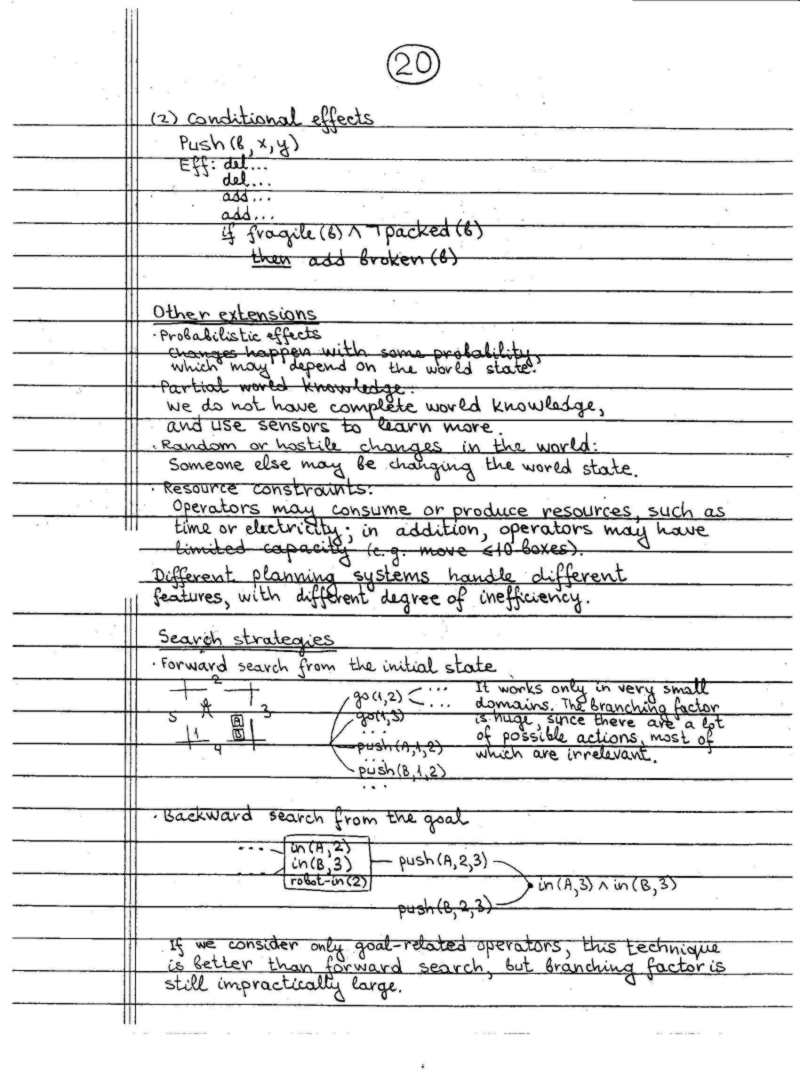 20
(2) Conditional effects
Push (b, x, y)
Eff: del...
del...
add...
add...
if fragile (b) ∧ ¬packed (b)
then add broken (b)
Other extensions
· Probabilistic effects
Changes happen with some probability,
which may depend on the world state.
· Partial world knowledge:
We do not have complete world knowledge,
and use sensors to learn more.
· Random or hostile changes in the world:
Someone else may be changing the world state.
· Resource constraints:
Operators may consume or produce resources, such as
time or electricity; in addition, operators may have
limited capacity (e.g. move ≤10 boxes).
Different planning systems handle different
features, with different degree of inefficiency.
Search strategies
· Forward search from the initial state
2
5
3
A
B
1
4
go(1,2) ...
...
go(1,3)
...
push(A,1,2)
...
push(B,1,2)
...
It works only in very small
domains. The branching factor
is huge, since there are a lot
of possible actions, most of
which are irrelevant.
· Backward search from the goal
.... in(A,2)
in(B,3)
.... robot-in(2)
push(A,2,3)
in(A,3) ∧ in(B,3)
push(B,2,3)
If we consider only goal-related operators, this technique
is better than forward search, but branching factor is
still impractically large.